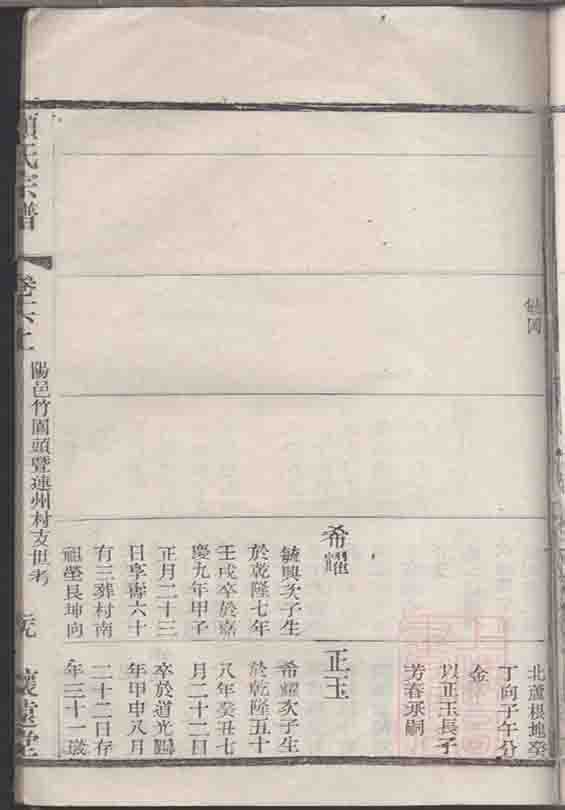 毓
北蘆根地癸
丁向子午分
金
以正玉長子
芳春承嗣
希耀
毓興次子生
於乾隆七年
壬戌卒於嘉
慶九年甲子
正月二十三
日享壽六十
有三葬村南
祖塋艮坤向
正玉
希耀次子生
於乾隆五十
八年癸丑七
月二十二日
卒於道光
年甲申八月
二十二日存
年三十二歲
氏宗譜
卷六上
陽邑竹園頭暨連州村支世考